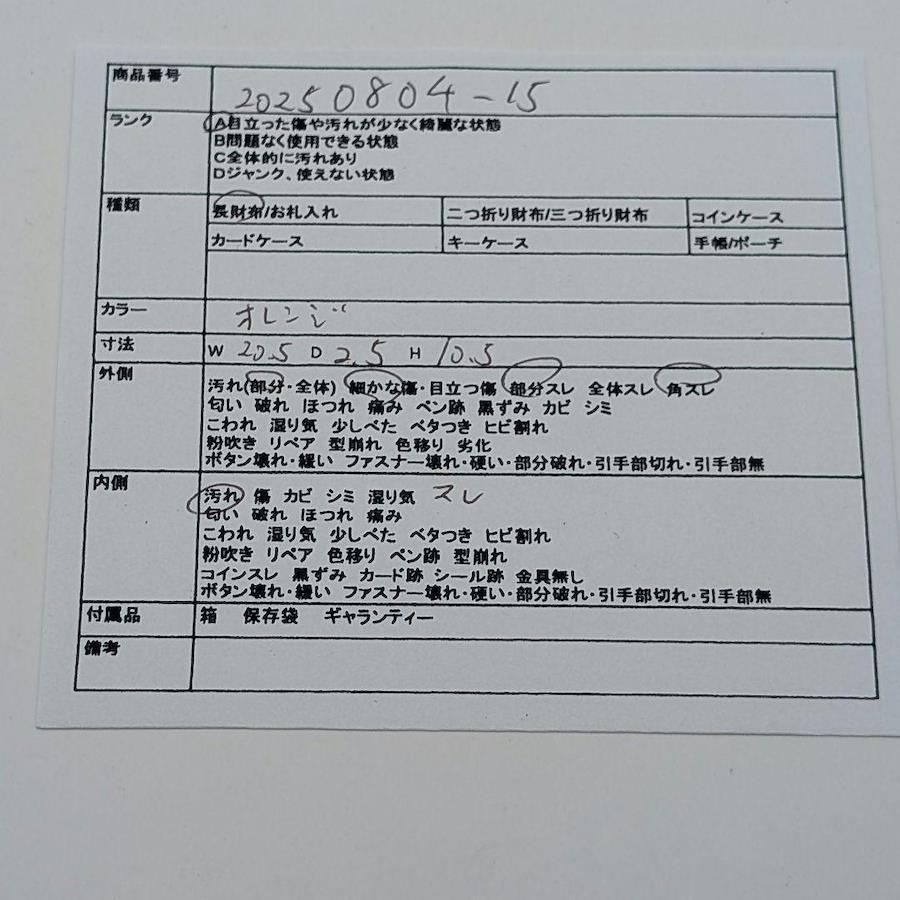 商品番号 20250804-15
ランク A目立った傷や汚れが少なく綺麗な状態
B問題なく使用できる状態
C全体的に汚れあり
Dジャンク、使えない状態
種類 長財布/お札入れ 二つ折り財布/三つ折り財布 コインケース
カードケース キーケース 手帳/ポーチ
カラー オレンジ
寸法 W 20.5 D 2.5 H 10.5
外側 汚れ(部分・全体) 細かな傷・目立つ傷 部分スレ 全体スレ 角スレ
匂い 破れ ほつれ 痛み ペン跡 黒ずみ カビ シミ
こわれ 湿り気 少しべた ベタつき ヒビ割れ
粉吹き リペア 型崩れ 色移り 劣化
ボタン壊れ・緩い ファスナー壊れ・硬い・部分破れ・引手部切れ・引手部無
内側 汚れ 傷 カビ シミ 湿り気 スレ
匂い 破れ ほつれ 痛み
こわれ 湿り気 少しべた ベタつき ヒビ割れ
粉吹き リペア 色移り ペン跡 型崩れ
コインスレ 黒ずみ カード跡 シール跡 金具無し
ボタン壊れ・緩い ファスナー壊れ・硬い・部分破れ・引手部切れ・引手部無
付属品 箱 保存袋 ギャランティー
備考